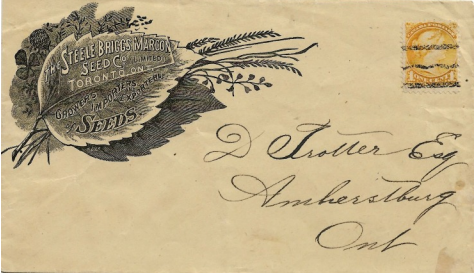 THE STEELE BRIGGS MARCON
SEED CO LIMITED
TORONTO ONT.
GROWERS
IMPORTERS
EXPORTERS
SEEDS
D Trotter Esq
Amherstburg
Ont